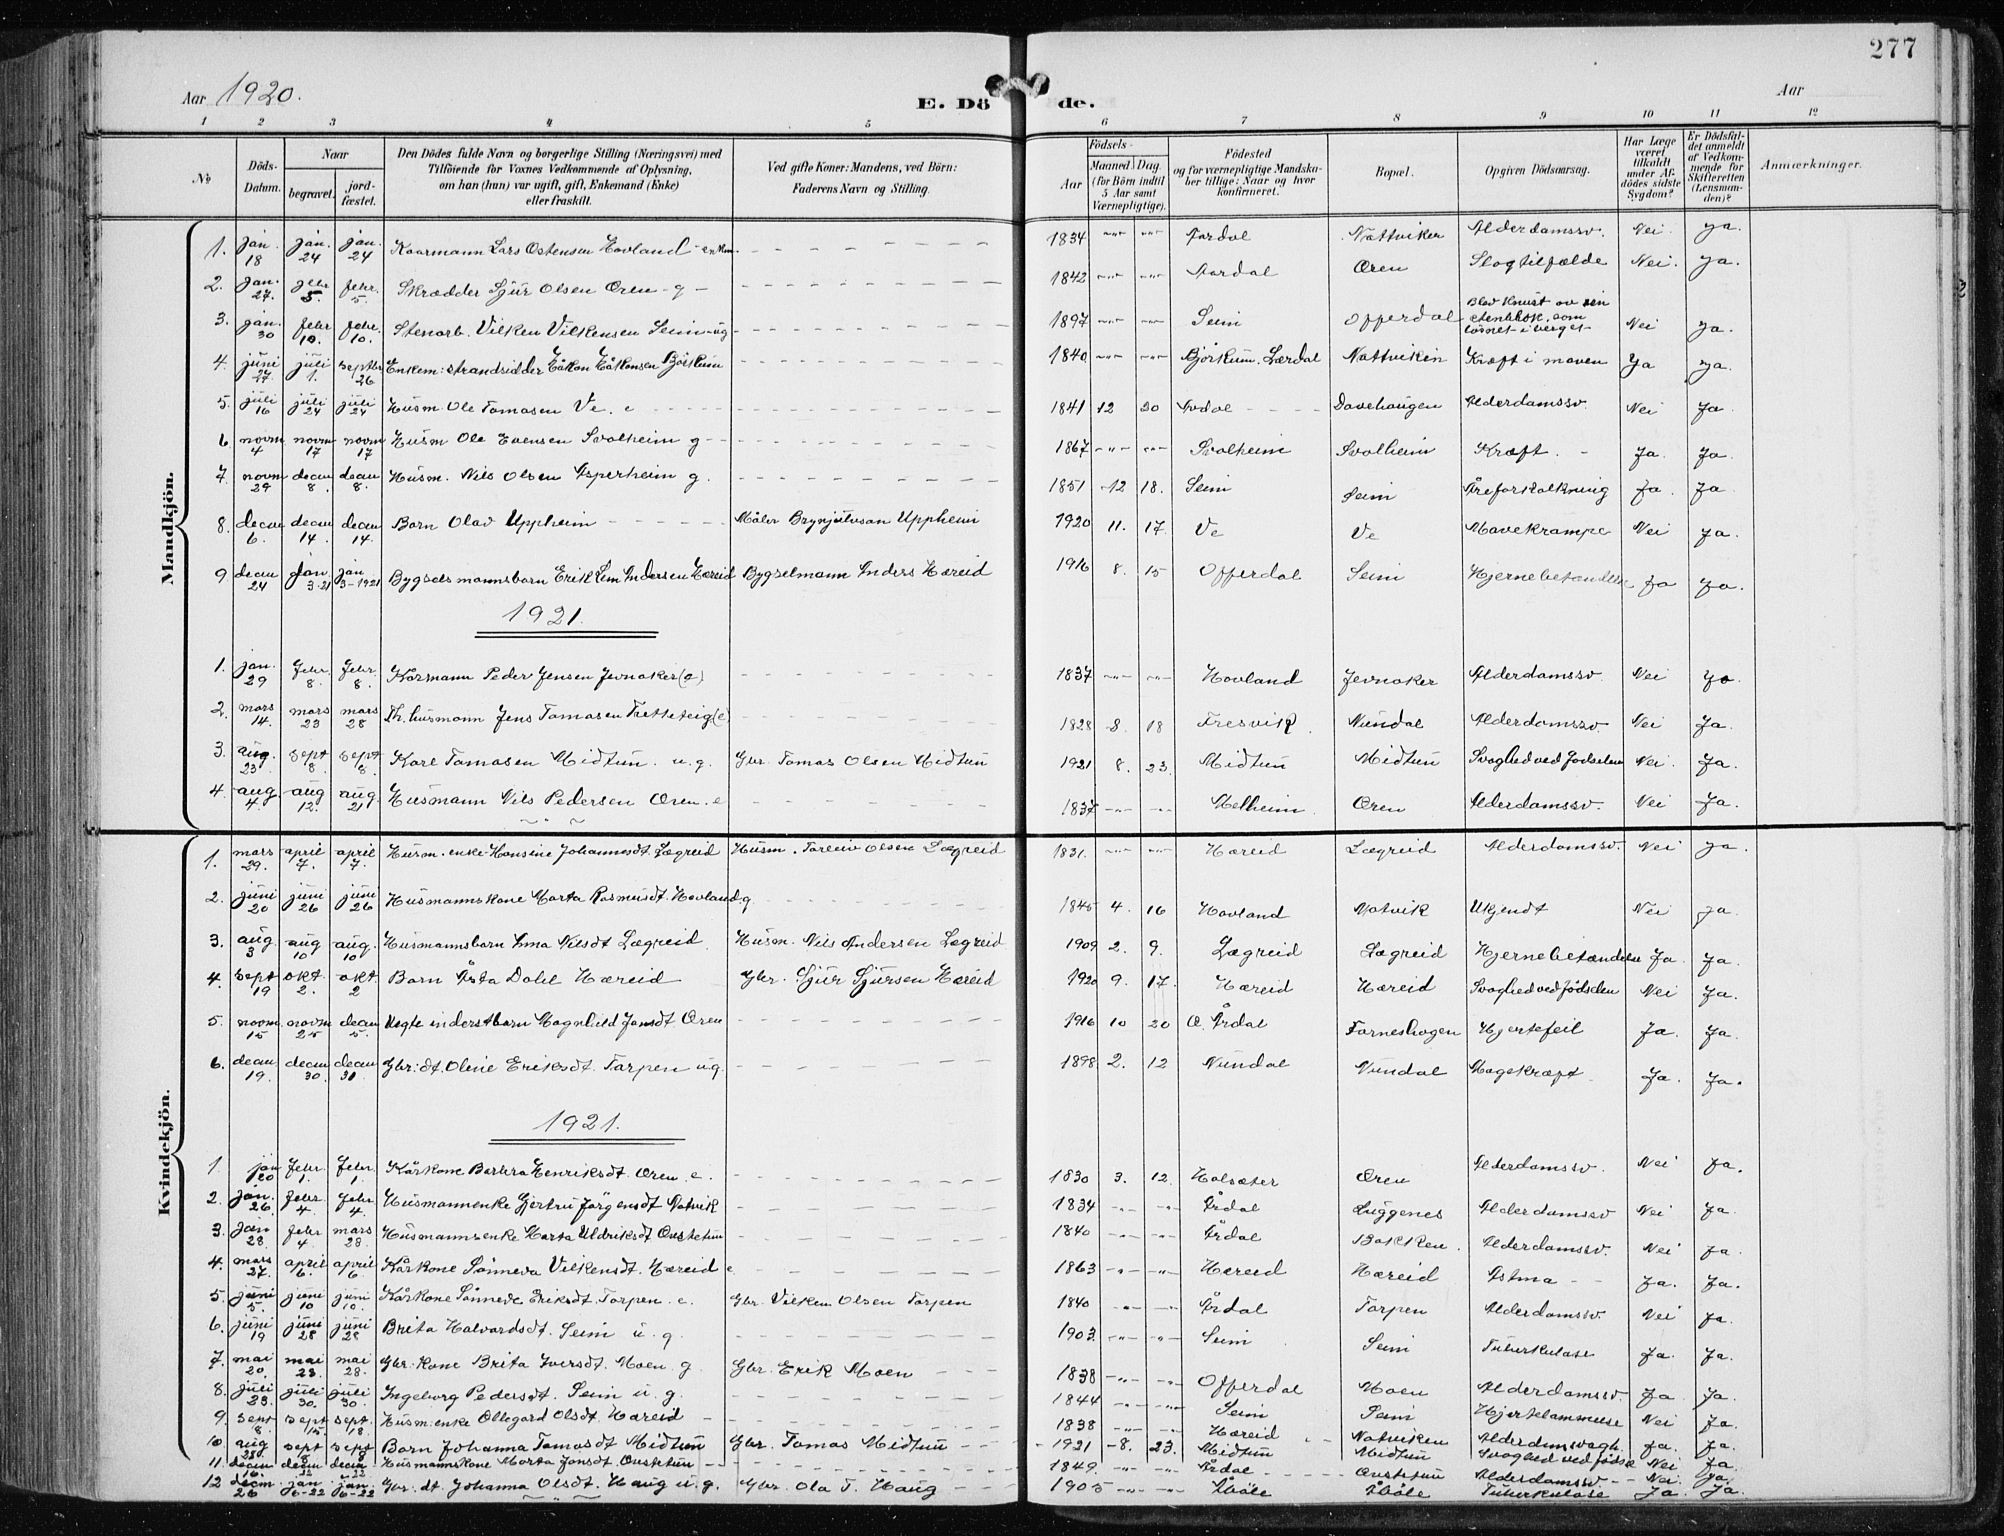 277
Aar 1920.
E. Dö de.
Aar
1 2 3 4 5 6 7 8 9 10 11 12
№
Döds-Datum.
Naar
begravet.
jordfæstet.
Den Dödes fulde Navn og borgerlige Stilling (Næringsvei) med Tilföiende for Voxnes Vedkommende af Oplysning, om han (hun) var ugift, gift, Enkemand (Enke) eller fraskilt.
Ved gifte Koner: Mandens, ved Börn: Faderens Navn og Stilling.
Födsels-
Aar
Maaned. Dag.
(for Börn indtil 5 Aar samt Værnepligtige).
Födested og for værnepligtige Mandskaber tillige: Naar og hvor konfirmeret.
Bopæl.
Opgiven Dödsaarsag.
Har Læge været tilkaldt under Afdödes sidste Sygdom?
Er Dödsfaldet anmeldt af Vedkommende for Skifteretten (Lensmanden)?
Anmærkninger.
Mandkjön.
1. jan. 18 jan. 24 jan. 24 Kaarmann Lars Ostensen Hovland enkm. 1834 Aardal Nattviken Alderdomssv. Nei ja.
2. jan. 27. febr. 5. febr. 5. Skrædder Sjur Olsen Øren g 1842 Aardal Øren Slagtilfælde Nei. ja.
3. jan. 30 febr 10. febr. 10. Stenarb. Vilken Vilkensen Seim ug 1897 Seim Offerdal Blev knust av en stenblok som løsnet i berget Nei ja.
4. juni 27 juli 1. septbr 26 Enkem: strandsidder Håkon Håkonsen Bjørkum 1840 Bjørkum. Lærdal Nattviken Kræft i maven Ja ja.
5. juli 16 juli 24 juli 24 Husm. Ole Tomasen Ve. e 1841 12 20 Ardal Dovehaugen Alderdomssv. Nei Ja.
6 novm 4 novm 17 novm 17 Husm Ole Evensen Svalheim g 1867 Svalheim Svalheim Kræft. Ja. Ja.
7. novm 29 decm 8. decm 8. Husm. Nils Olsen Asperheim g. 1851 12 18. Seim Seim Åreforkalkning Ja. Ja.
8. decm 6. decm 14. decm 14. Barn Olav Uppheim Måler Brynjulvsan Uppheim 1920 11. 17. Ve Ve Mavekrampe Nei ja.
9 decm 24 jan 3-21 jan 3-1921 Bygselsmannsbarn Erik Lem Andersen Hæreid Bygselmann Anders Hæreid 1916 8. 15 Offerdal Seim Hjernebetændelse Ja Ja.
1921.
1. jan. 29 Febr. 8. Febr. 8. Kårmann Peder Jensen Jevnaker (e) 1837 Hovland Jevnaker Alderdomssv. Nei Ja.
2. mars 14. mars 23 mars 28 Th. husmann Jens Tomasen Tretteteig (e) 1828 8 18 Fresvik Nundal Alderdomssv. Nei Ja.
3. aug. 23 sept 8. sept 8. Karl Tomasen Midtun. u.g. Gbr. Tomas Olsen Midtun 1921 8. 23. Midtun Midtun Svaghed ved fødselen Nei. Ja.
4. aug. 4. aug 12. aug 21 Husmann Nils Pedersen Øren. e 1837 Melheim. Øren Alderdomssv. Nei Ja.
Kvindekjön.
1. mars 29. april 7. april 7. Husm. enke Hansine Johannesdt. Lægreid Husm. Torleiv Olsen Lægreid 1831. Hæreid Lægreid Alderdomssv. Nei Ja.
2. juni 20 juni 26 juni 26 Husmannskone Marta Rasmusdt. Hovland g 1845 4. 16 Hovland Natvik Ukjendt Nei ja.
3. aug 3 aug 10 aug. 10 Husmannsbarn Anna Nilsdt Lægreid Husm. Nils Andersen Lægreid 1909 2. 9. Lægreid Lægreid Hjernebetændelse Ja. Ja.
4. sept 19 okt. 2. okt 2 Barn Åsta Dahl Hæreid Gbr. Sjur Sjursen Hæreid 1920 9. 17. Hæreid Hæreid Svaghed ved fødselen Nei Ja.
5. novm 15 novm 25 decm 5. Magnhild Jonsdt Øren 1916 10 20 Ø. Årdal Farneshagen Hjertefeil Ja. Ja.
6. decm 19. decm 30. decm 31. Gbr: dt. Oline Eriksdt. Torpen ug. 1898 2. 12 Nundal Nundal Magekræft. Ja. Ja.
1921.
1. jan 20 Febr. 1. Febr. 1. Kårkone Barbra Henriksdt. Øren. e. 1830 3. 12. Holsæter Øren Alderdomssv. Nei Ja.
2. jan. 26. Febr 4. Febr 4. Husmannenke Gjertru Jørgensdt Natvik 1834 Årdal Luggenes Alderdomssv Nei Ja.
3. jan 28. febr 4. mars 28. Husmannsenke Marta Uldriksdt Ovstetun 1840 Årdal Bakken. Alderdomssv. Nei Ja.
4. mars 27. april 6. april 6. Kårkone Sønneva Vilkensdt. Hæreid e 1863 Hæreid Hæreid Astma Ja. Ja.
5. juni 5. juni 10 juni 10. Kårkone Sønneve Eriksdt. Torpen. e. Gbr. Vilken Olsen Torpen 1840 Årdal Torpen Alderdomssv. Nei Ja.
6. juni 19 juni 28 juni 28 Brita Halvardsdt. Seim u. g. 1903. Seim Seim Tuberkulose Ja. Ja.
7. mai 20. mai 23. mai 28. Gbr: kone Brita Iversdt. Moen. g. Gbr. Erik Moen 1838 Offerdal Moen Alderdomssv. Ja Ja.
8. juli 23. juli 30. juli 30. Ingeborg Pedersdt. Seim u. g. 1844 Seim Seim Hjertelammelse Nei Ja.
9. sept 8. sept 15 sept. 18. Husm: enke Ollegard Olsdt. Hæreid 1838 Hæreid Natviken Alderdomsvagh. Ja. Ja.
10. aug 23. sept 8 sept 8 Barn Johanna Tomasdt Midtun Gbr. Tomas Midtun 1921 8. 23. Midtun Midtun Svaghed ved føds. Nei Ja.
11 decm 16. decm 22 decm 22 Husmannskone Marta Jonsdt. Ovstetun 1849. Årdal Ovstetun Alderdomssv. Nei. Ja.
12 decm 26 jan. 6-22 jan. 6-22 Gbr. dt. Johanna Olsdt. Haug u. g. Gbr. Ola T. Haug 1905 Åbøle Åbøle Tuberkulose Ja. Ja.